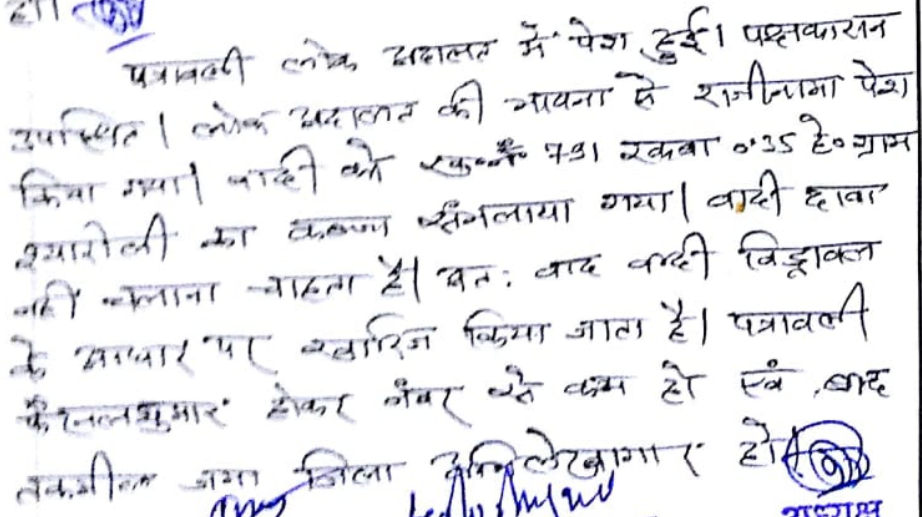 हो।
पत्रावली लोक अदालत में पेश हुई। पक्षकारान
उपस्थित। लोक अदालत की भावना से राजीनामा पेश
किया गया। वादी को 791 रकबा 0.35 हे० ग्राम
श्यारोली का कब्जा संभलाया गया। वादी दावा
नहीं चलाना चाहता है। अतः वाद वादी विड्रावल
के आधार पर खारिज किया जाता है। पत्रावली
फैसलशुमार होकर नंबर से कम हो एवं बाद
तकमील जमा जिला अभिलेखागार हो।
अध्यक्ष